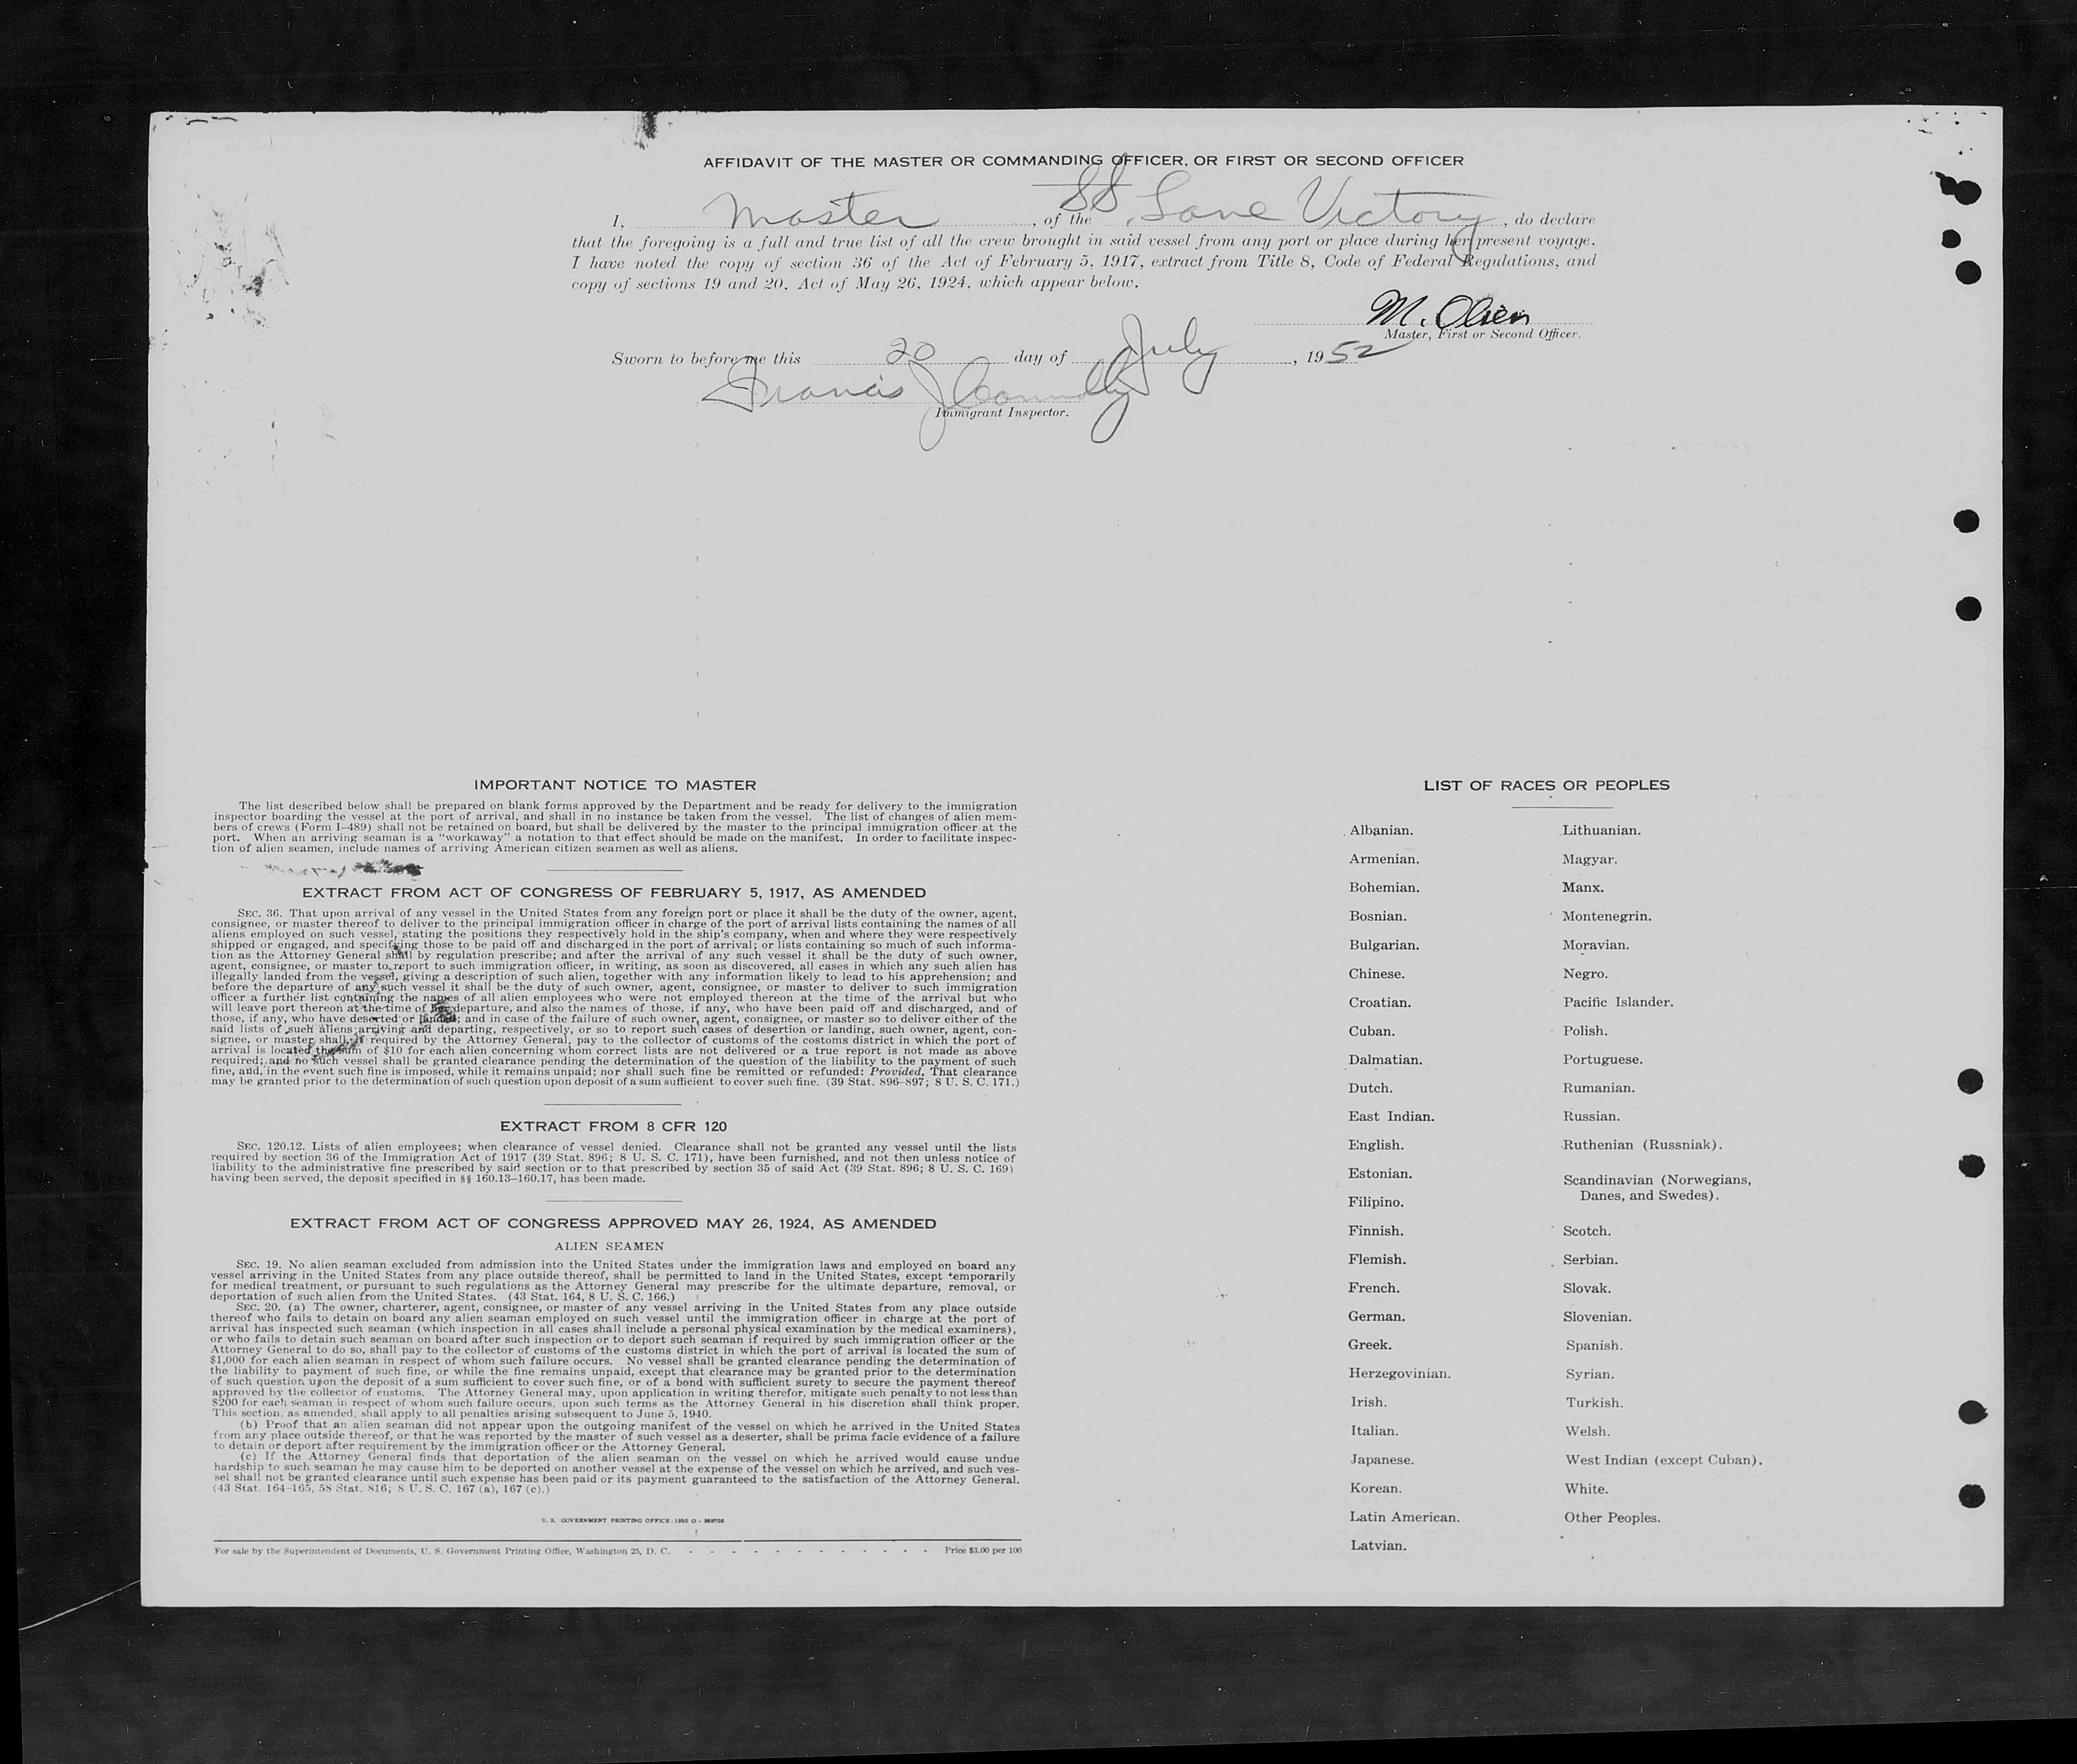 AFFIDAVIT OF THE MASTER OR COMMANDING OFFICER, OR FIRST OR SECOND OFFICER
I, Master, of the SS. Lane Victory, do declare
that the foregoing is a full and true list of all the crew brought in said vessel from any port or place during her present voyage.
I have noted the copy of section 36 of the Act of February 5, 1917, extract from Title 8, Code of Federal Regulations, and
copy of sections 19 and 20, Act of May 26, 1924, which appear below.
M. Olsen
Master, First or Second Officer.
Sworn to before me this 20 day of July, 1952
Francis J Connolly
Immigrant Inspector.
IMPORTANT NOTICE TO MASTER
The list described below shall be prepared on blank forms approved by the Department and be ready for delivery to the immigration
inspector boarding the vessel at the port of arrival, and shall in no instance be taken from the vessel. The list of changes of alien mem-
bers of crews (Form I-489) shall not be retained on board, but shall be delivered by the master to the principal immigration officer at the
port. When an arriving seaman is a "workaway" a notation to that effect should be made on the manifest. In order to facilitate inspec-
tion of alien seamen, include names of arriving American citizen seamen as well as aliens.
EXTRACT FROM ACT OF CONGRESS OF FEBRUARY 5, 1917, AS AMENDED
SEC. 36. That upon arrival of any vessel in the United States from any foreign port or place it shall be the duty of the owner, agent,
consignee, or master thereof to deliver to the principal immigration officer in charge of the port of arrival lists containing the names of all
aliens employed on such vessel, stating the positions they respectively hold in the ship's company, when and where they were respectively
shipped or engaged, and specifying those to be paid off and discharged in the port of arrival; or lists containing so much of such informa-
tion as the Attorney General shall by regulation prescribe; and after the arrival of any such vessel it shall be the duty of such owner,
agent, consignee, or master to report to such immigration officer, in writing, as soon as discovered, all cases in which any such alien has
illegally landed from the vessel, giving a description of such alien, together with any information likely to lead to his apprehension; and
before the departure of any such vessel it shall be the duty of such owner, agent, consignee, or master to deliver to such immigration
officer a further list containing the names of all alien employees who were not employed thereon at the time of the arrival but who
will leave port thereon at the time of her departure, and also the names of those, if any, who have been paid off and discharged, and of
those, if any, who have deserted or landed; and in case of the failure of such owner, agent, consignee, or master so to deliver either of the
said lists of such aliens arriving and departing, respectively, or so to report such cases of desertion or landing, such owner, agent, con-
signee, or master shall, if required by the Attorney General, pay to the collector of customs of the costoms district in which the port of
arrival is located the sum of $10 for each alien concerning whom correct lists are not delivered or a true report is not made as above
required; and no such vessel shall be granted clearance pending the determination of the question of the liability to the payment of such
fine, and, in the event such fine is imposed, while it remains unpaid; nor shall such fine be remitted or refunded: Provided, That clearance
may be granted prior to the determination of such question upon deposit of a sum sufficient to cover such fine. (39 Stat. 896-897; 8 U. S. C. 171.)
EXTRACT FROM 8 CFR 120
SEC. 120.12. Lists of alien employees; when clearance of vessel denied. Clearance shall not be granted any vessel until the lists
required by section 36 of the Immigration Act of 1917 (39 Stat. 896; 8 U. S. C. 171), have been furnished, and not then unless notice of
liability to the administrative fine prescribed by said section or to that prescribed by section 35 of said Act (39 Stat. 896; 8 U. S. C. 169)
having been served, the deposit specified in §§ 160.13-160.17, has been made.
EXTRACT FROM ACT OF CONGRESS APPROVED MAY 26, 1924, AS AMENDED
ALIEN SEAMEN
SEC. 19. No alien seaman excluded from admission into the United States under the immigration laws and employed on board any
vessel arriving in the United States from any place outside thereof, shall be permitted to land in the United States, except temporarily
for medical treatment, or pursuant to such regulations as the Attorney General may prescribe for the ultimate departure, removal, or
deportation of such alien from the United States. (43 Stat. 164, 8 U. S. C. 166.)
SEC. 20. (a) The owner, charterer, agent, consignee, or master of any vessel arriving in the United States from any place outside
thereof who fails to detain on board any alien seaman employed on such vessel until the immigration officer in charge at the port of
arrival has inspected such seaman (which inspection in all cases shall include a personal physical examination by the medical examiners),
or who fails to detain such seaman on board after such inspection or to deport such seaman if required by such immigration officer or the
Attorney General to do so, shall pay to the collector of customs of the customs district in which the port of arrival is located the sum of
$1,000 for each alien seaman in respect of whom such failure occurs. No vessel shall be granted clearance pending the determination of
the liability to payment of such fine, or while the fine remains unpaid, except that clearance may be granted prior to the determination
of such question upon the deposit of a sum sufficient to cover such fine, or of a bond with sufficient surety to secure the payment thereof
approved by the collector of customs. The Attorney General may, upon application in writing therefor, mitigate such penalty to not less than
$200 for each seaman in respect of whom such failure occurs, upon such terms as the Attorney General in his discretion shall think proper.
This section, as amended, shall apply to all penalties arising subsequent to June 5, 1940.
(b) Proof that an alien seaman did not appear upon the outgoing manifest of the vessel on which he arrived in the United States
from any place outside thereof, or that he was reported by the master of such vessel as a deserter, shall be prima facie evidence of a failure
to detain or deport after requirement by the immigration officer or the Attorney General.
(c) If the Attorney General finds that deportation of the alien seaman on the vessel on which he arrived would cause undue
hardship to such seaman he may cause him to be deported on another vessel at the expense of the vessel on which he arrived, and such ves-
sel shall not be granted clearance until such expense has been paid or its payment guaranteed to the satisfaction of the Attorney General.
(43 Stat. 164-165, 58 Stat. 816; 8 U. S. C. 167 (a), 167 (c).)
U. S. GOVERNMENT PRINTING OFFICE: 1950 O - 869708
For sale by the Superintendent of Documents, U. S. Government Printing Office, Washington 25, D. C. - - - - - - - - - - - - Price $3.00 per 100
LIST OF RACES OR PEOPLES
Albanian.
Armenian.
Bohemian.
Bosnian.
Bulgarian.
Chinese.
Croatian.
Cuban.
Dalmatian.
Dutch.
East Indian.
English.
Estonian.
Filipino.
Finnish.
Flemish.
French.
German.
Greek.
Herzegovinian.
Irish.
Italian.
Japanese.
Korean.
Latin American.
Latvian.
Lithuanian.
Magyar.
Manx.
Montenegrin.
Moravian.
Negro.
Pacific Islander.
Polish.
Portuguese.
Rumanian.
Russian.
Ruthenian (Russniak).
Scandinavian (Norwegians,
Danes, and Swedes).
Scotch.
Serbian.
Slovak.
Slovenian.
Spanish.
Syrian.
Turkish.
Welsh.
West Indian (except Cuban).
White.
Other Peoples.